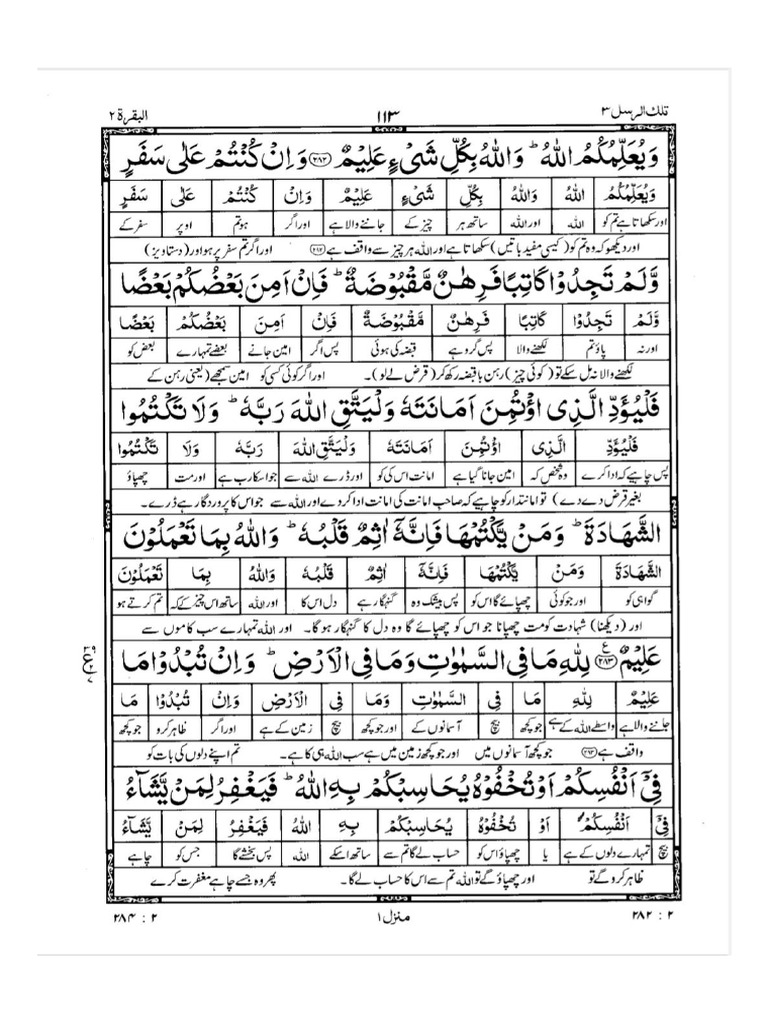 تلك الرسل ۳ ۱۱۳ البقرة ۲
وَيُعَلِّمُكُمُ اللّٰهُ ؕ وَاللّٰهُ بِكُلِّ شَىْءٍ عَلِيْمٌ ﴿۲۸۲﴾ وَاِنْ كُنْتُمْ عَلٰى سَفَرٍ
وَيُعَلِّمُكُمُ اللّٰهُ وَاللّٰهُ بِكُلِّ شَىْءٍ عَلِيْمٌ وَاِنْ كُنْتُمْ عَلٰى سَفَرٍ
اور سکھاتا ہے تم کو اللہ اور اللہ ساتھ ہر چیز کے جاننے والا ہے اور اگر ہو تم اوپر سفر کے
اور دیکھو کہ وہ تم کو (کیسی مفید باتیں) سکھاتا ہے اور اللہ ہر چیز سے واقف ہے ﴿۲۸۲﴾ اور اگر تم سفر پر ہو اور (دستاویز)
وَّلَمْ تَجِدُوْا كَاتِبًا فَرِهٰنٌ مَّقْبُوْضَةٌ ؕ فَاِنْ اَمِنَ بَعْضُكُمْ بَعْضًا
وَّلَمْ تَجِدُوْا كَاتِبًا فَرِهٰنٌ مَّقْبُوْضَةٌ فَاِنْ اَمِنَ بَعْضُكُمْ بَعْضًا
اور نہ پاؤ تم لکھنے والا پس گرو ہے قبضہ کی ہوئی پس اگر امین جانے بعضے تمہارے بعض کو
لکھنے والا نہ مل سکے تو (کوئی چیز) رہن با قبضہ رکھ کر (قرض لے لو)۔ اور اگر کوئی کسی کو امین سمجھے (یعنی رہن کے
فَلْيُؤَدِّ الَّذِى اؤْتُمِنَ اَمَانَتَهٗ وَلْيَتَّقِ اللّٰهَ رَبَّهٗ ؕ وَلَا تَكْتُمُوا
فَلْيُؤَدِّ الَّذِى اؤْتُمِنَ اَمَانَتَهٗ وَلْيَتَّقِ اللّٰهَ رَبَّهٗ وَلَا تَكْتُمُوا
پس چاہیے کہ ادا کرے وہ شخص کہ امین جانا گیا ہے امانت اس کی کو اور ڈرے اللہ سے جو اسکا رب ہے اور مت چھپاؤ
بغیر قرض دے دے) تو امانتدار کو چاہیے کہ صاحب امانت کی امانت ادا کر دے اور اللہ سے جو اس کا پروردگار ہے ڈرے۔
الشَّهَادَةَ ؕ وَمَنْ يَّكْتُمْهَا فَاِنَّهٗۤ اٰثِمٌ قَلْبُهٗ ؕ وَاللّٰهُ بِمَا تَعْمَلُوْنَ
الشَّهَادَةَ وَمَنْ يَّكْتُمْهَا فَاِنَّهٗۤ اٰثِمٌ قَلْبُهٗ وَاللّٰهُ بِمَا تَعْمَلُوْنَ
گواہی کو اور جو کوئی چھپائے گا اس کو پس بیشک وہ گنہگار ہے دل اس کا اور اللہ ساتھ اس چیز کے کہ تم کرتے ہو
اور (دیکھنا) شہادت کو مت چھپانا جو اس کو چھپائے گا وہ دل کا گنہگار ہوگا۔ اور اللہ تمہارے سب کاموں سے
عَلِيْمٌ ﴿۲۸۳﴾ ع لِلّٰهِ مَا فِى السَّمٰوٰتِ وَمَا فِى الْاَرْضِ ؕ وَاِنْ تُبْدُوْا مَا
عَلِيْمٌ لِلّٰهِ مَا فِى السَّمٰوٰتِ وَمَا فِى الْاَرْضِ وَاِنْ تُبْدُوْا مَا
جاننے والا ہے واسطے اللہ کے ہے جو کچھ بیچ آسمانوں کے اور جو کچھ بیچ زمین کے ہے اور اگر ظاہر کرو جو کچھ
واقف ہے ﴿۲۸۳﴾ جو کچھ آسمانوں میں اور جو کچھ زمین میں ہے سب اللہ ہی کا ہے۔ تم اپنے دلوں کی بات کو
فِىْۤ اَنْفُسِكُمْ اَوْ تُخْفُوْهُ يُحَاسِبْكُمْ بِهِ اللّٰهُ ؕ فَيَغْفِرُ لِمَنْ يَّشَآءُ
فِىْۤ اَنْفُسِكُمْ اَوْ تُخْفُوْهُ يُحَاسِبْكُمْ بِهِ اللّٰهُ فَيَغْفِرُ لِمَنْ يَّشَآءُ
بیچ تمہارے دلوں کے ہے یا چھپاؤ اس کو حساب لے گا تم سے ساتھ اسکے اللہ پس بخشے گا جس کو چاہے
ظاہر کرو گے تو اور چھپاؤ گے تو اللہ تم سے اس کا حساب لے گا۔ پھر وہ جسے چاہے مغفرت کرے
۲ : ۲۸۲ منزل ۱ ۲ : ۲۸۴